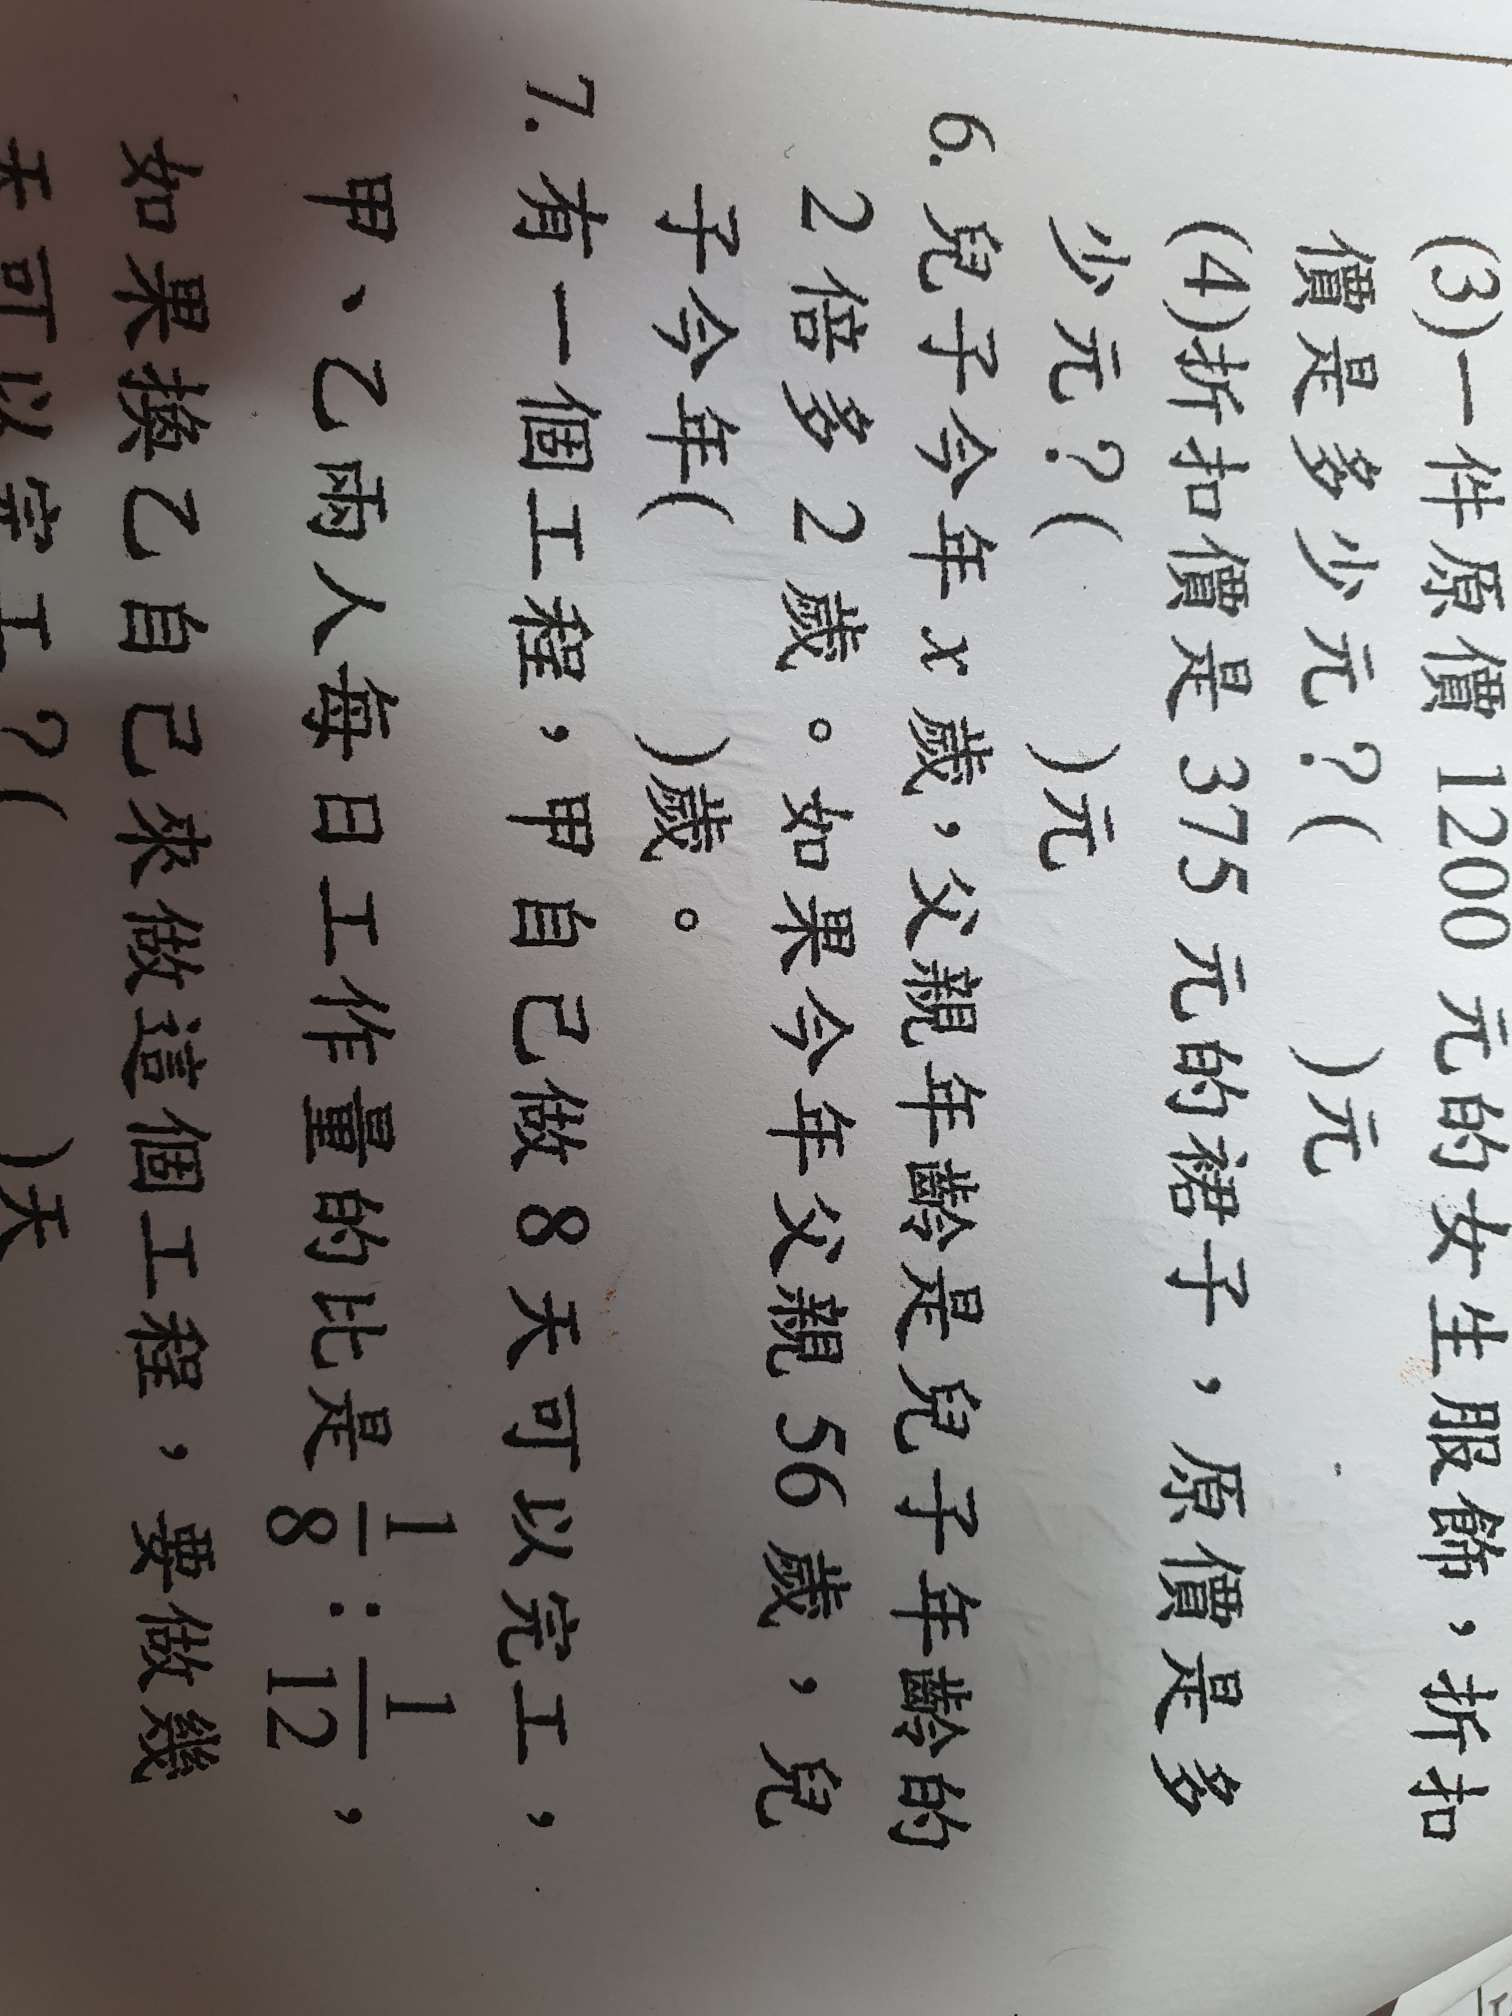 (3)一件原價 1200 元的女生服飾，折扣
價是多少元？(        )元
(4)折扣價是 375 元的裙子，原價是多
少元？(        )元
6. 兒子今年 x 歲，父親年齡是兒子年齡的
2 倍多 2 歲。如果今年父親 56 歲，兒
子今年(        )歲。
7. 有一個工程，甲自己做 8 天可以完工，
甲、乙兩人每日工作量的比是 1/8：1/12，
如果換乙自己來做這個工程，要做幾
天可以完工？(        )天